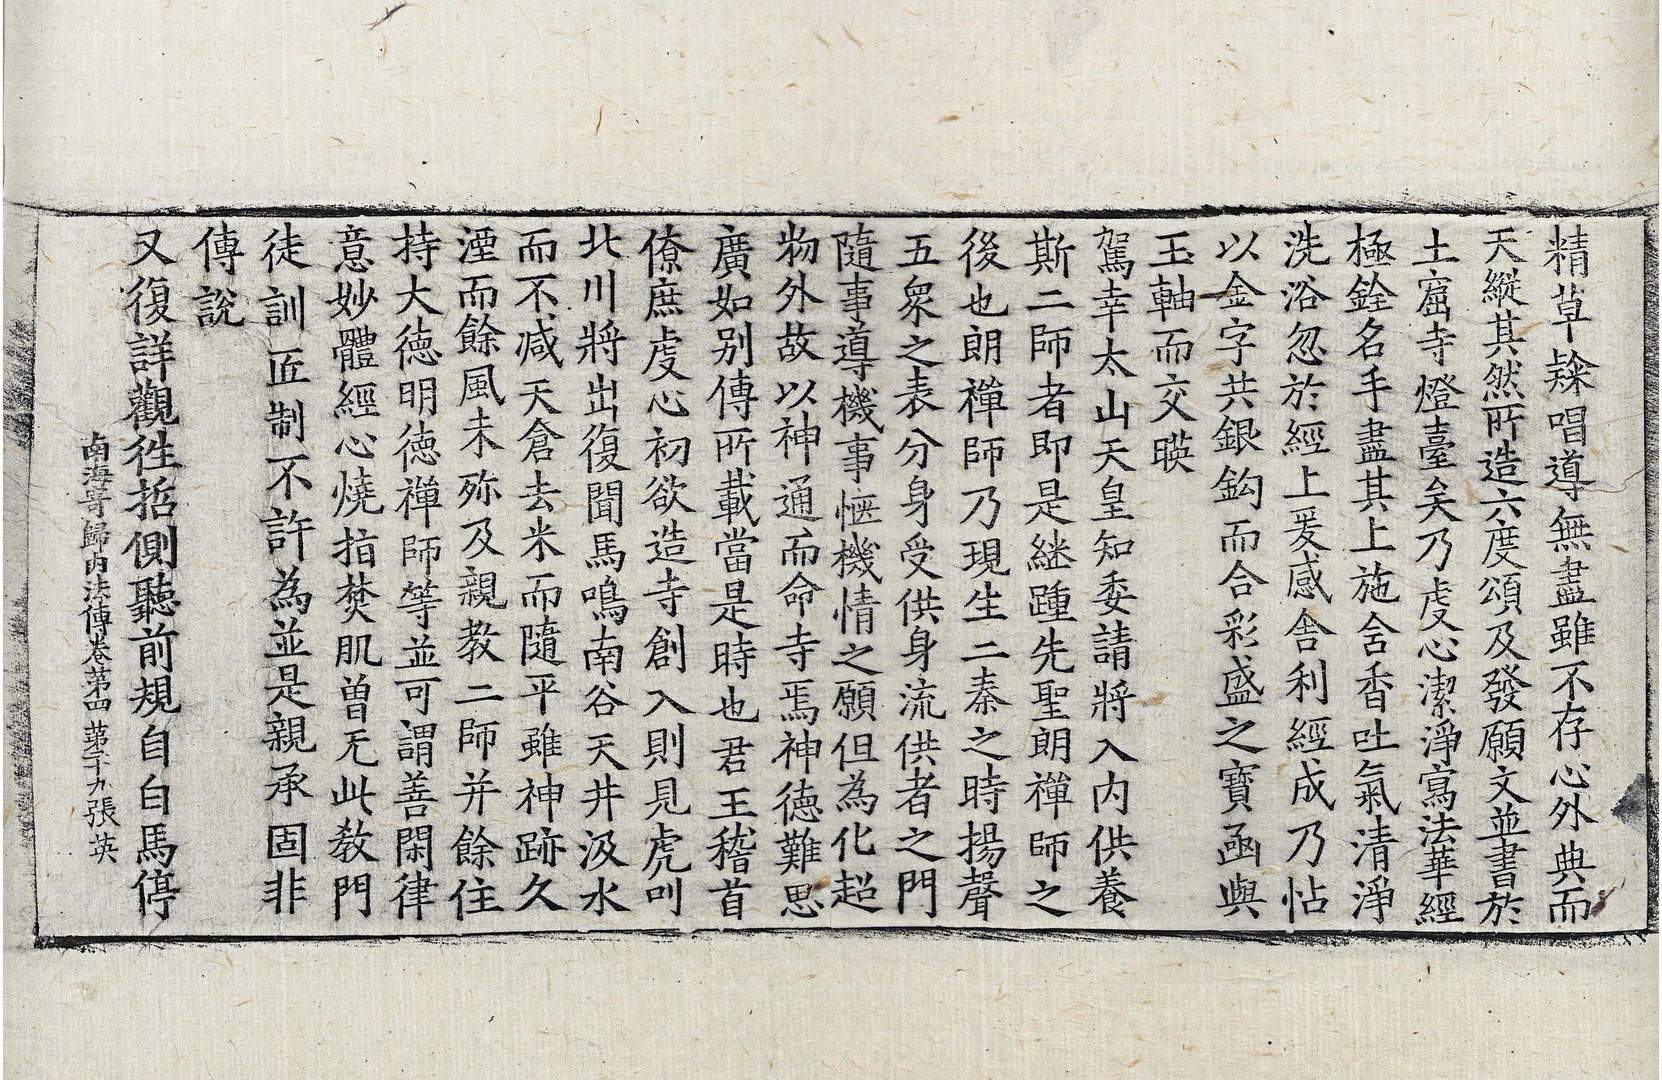 精草隸唱導無盡雖不存心外典而
天縱其然所造六度頌及發願文並書於
土窟寺燈臺矣乃虔心潔淨寫法華經
極銓名手盡其上施含香吐氣清淨
洗浴忽於經上爰感舎利經成乃帖
以金字共銀鈎而合彩盛之寶函與
玉軸而交暎
駕幸太山天皇知委請將入内供養
斯二師者即是継踵先聖朗禪師之
後也朗禪師乃現生二秦之時揚聲
五衆之表分身受供身流供者之門
隨事導機事愜機情之願但為化超
物外故以神通而命寺焉神德難思
廣如別傳所載當是時也君王稽首
僚庶虔心初欲造寺創入則見虎叫
北川將出復聞馬鳴南谷天井汲水
而不減天倉去米而隨平雖神跡久
湮而餘風未殄及親教二師并餘住
持大德明德禪師等並可謂善閑律
意妙體經心燒指焚肌曽无此教門
徒訓匠制不許為並是親承固非
傳說
又復詳觀徃哲側聽前規自白馬停
南海寄歸内法傳卷第四 第二十九張 英